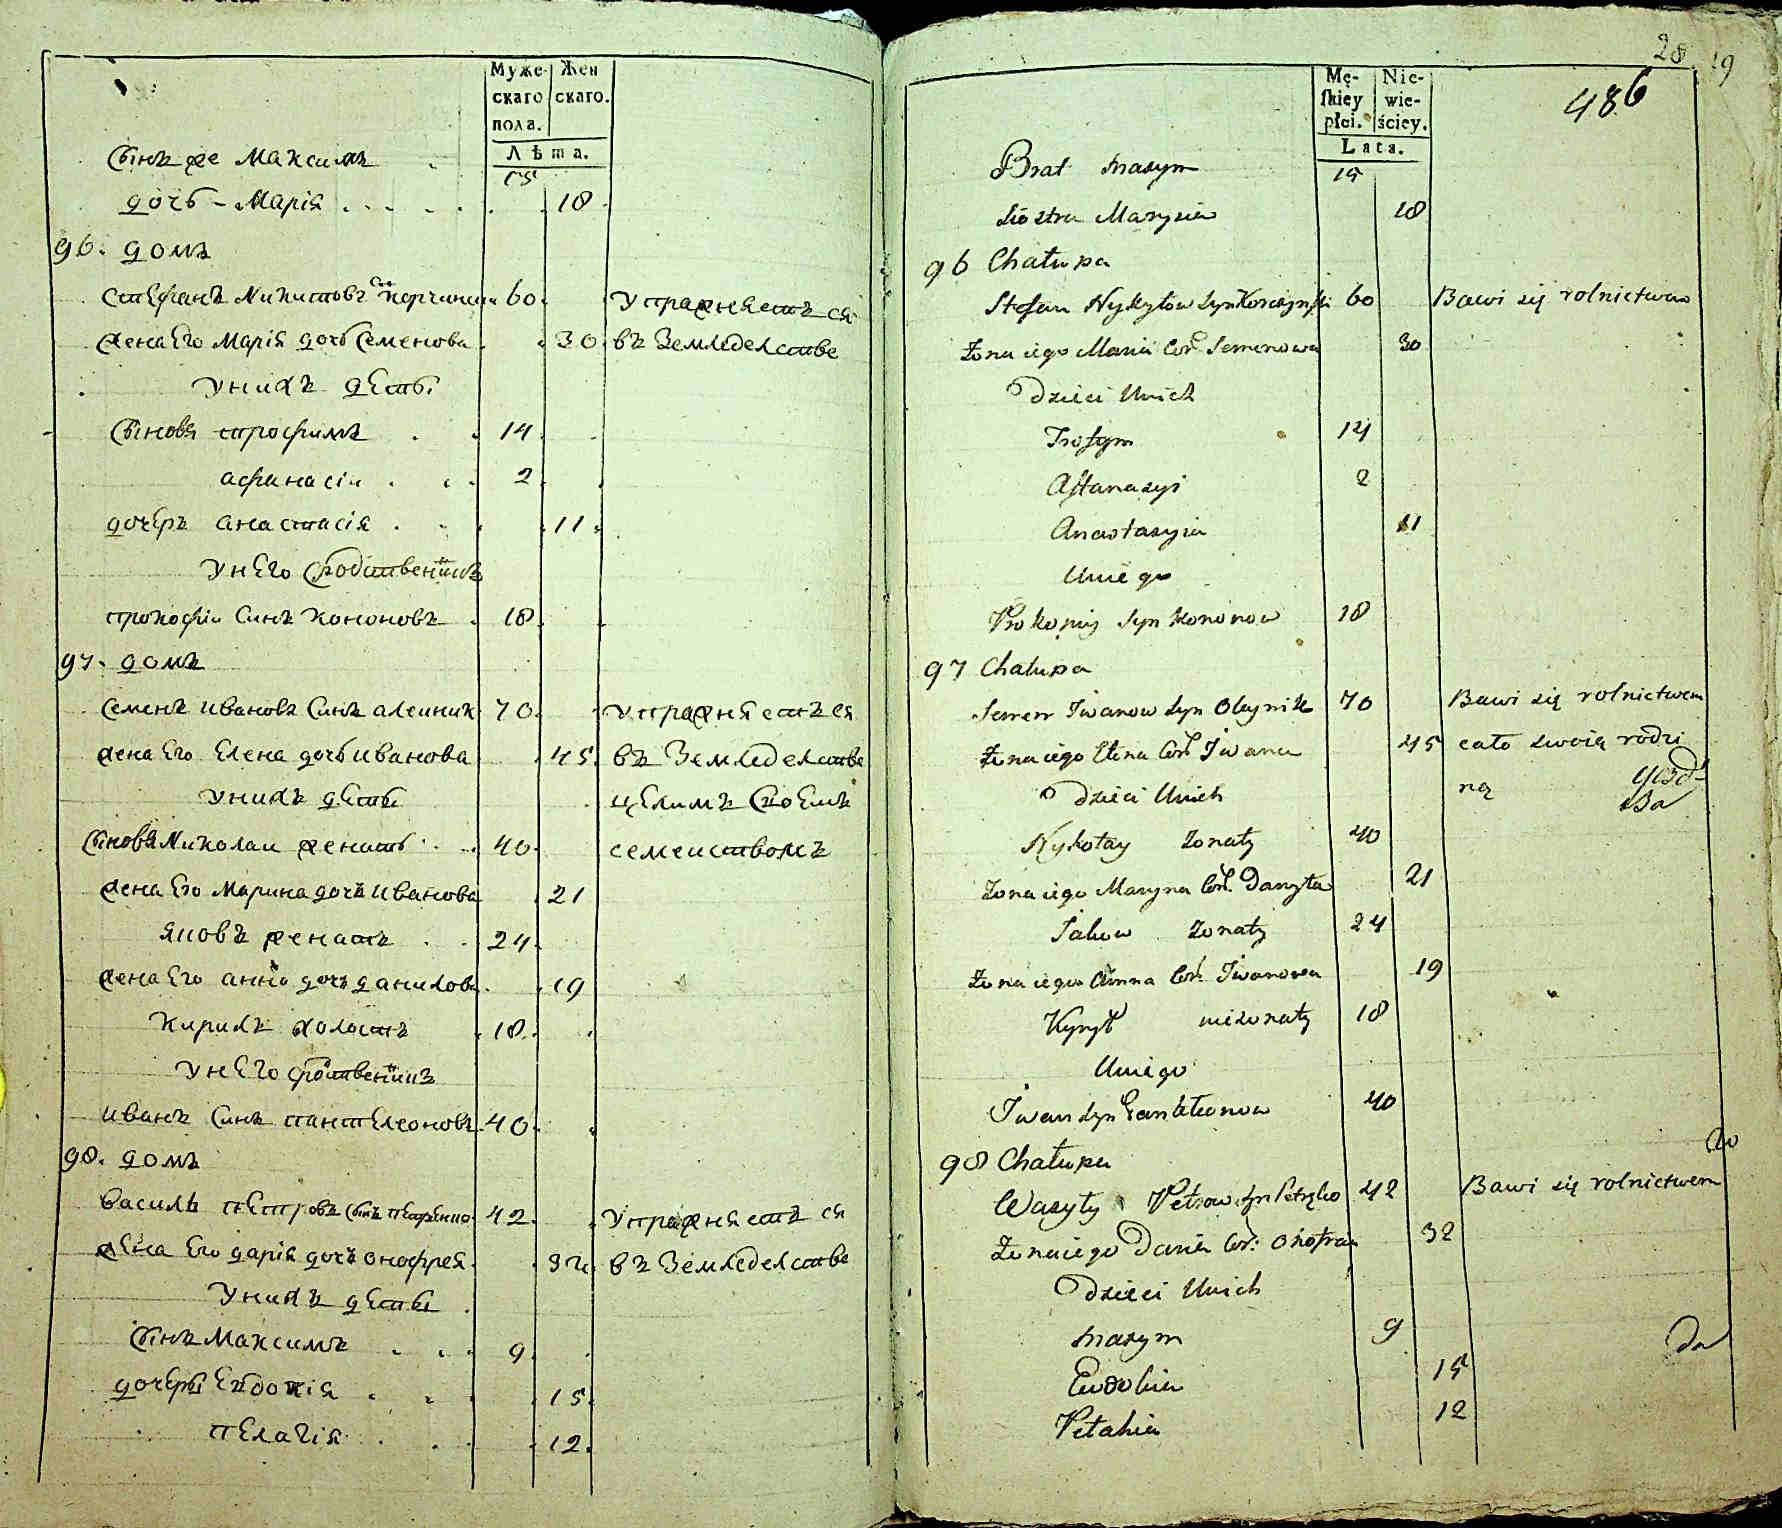 Муже- Жен
скаго скаго.
пола.
Лѣта.
Сынъ же Максимъ 15
дочь - Марія 18
96. домъ
Стефанъ Никитовъ Сынъ 60 Упражняетъ ся
жена Его Марія дочь Семенова 30 въ Земледелстве
Унихъ дети
Сыновя трофимъ 14
афанасіи 2
дочеръ анастасія 11
Унего сродственникъ
прокофіи Синъ Кононовъ 18
97. домъ
Семенъ Ивановъ Синъ алеиник 70 Упражняетъ ся
жена Его Елена дочь Иванова 45 въ Земледелстве
Унихъ дети целимъ своемъ
Сыновя Николаи женатъ 40 семеиствомъ
жена Его Марина дочь Иванова 21
яковъ женатъ 24
жена Его анна дочь данилова 19
Кирилъ холостъ 18
Унего сродственникъ
иванъ Синъ пантелеоновъ 40
98. домъ
Василь петровъ Сынъ 42 Упражняетъ ся
жена Его дарія дочь онофрея 32 въ Земледелстве
Унихъ дети
Сынъ Максимъ 9
дочери Евдокія 15
пелагія 12
28 19
486
Mę- Nie-
skiey wie-
płci. ściey.
Lata.
Brat Maxym 15
Siostra Marysia 18
96 Chałupa
Stefan Nykytów Syn 60 Bawi się rolnictwem
Żona iego Maria Cór. Semenowa 30
Dzieci Unich
Trofym 14
Aftanazyi 2
Anastazyia 11
Uniego
Prokopiy Syn Kononow 18
97 Chałupa
Semen Iwanow Syn Oleynik 70 Bawi się rolnictwem
Żona iego Elena Cór. Iwana 45 cało swoią rodzi
Dzieci Unich ną
Nykołay Żonaty 40
Żona iego Maryna Cór. Danyła 21
Jakow Żonaty 24
Żona iego Anna Cór. Iwanowa 19
Kyrył nieżonaty 18
Uniego
Iwan Syn Panteleonow 40
98 Chałupa
Wasyly Petrow Syn Petryko 42 Bawi się rolnictwem
Żona iego Daria Cór: Onofraa 32
Dzieci Unich
Maxym 9
Ewdokia 15
Pełahia 12